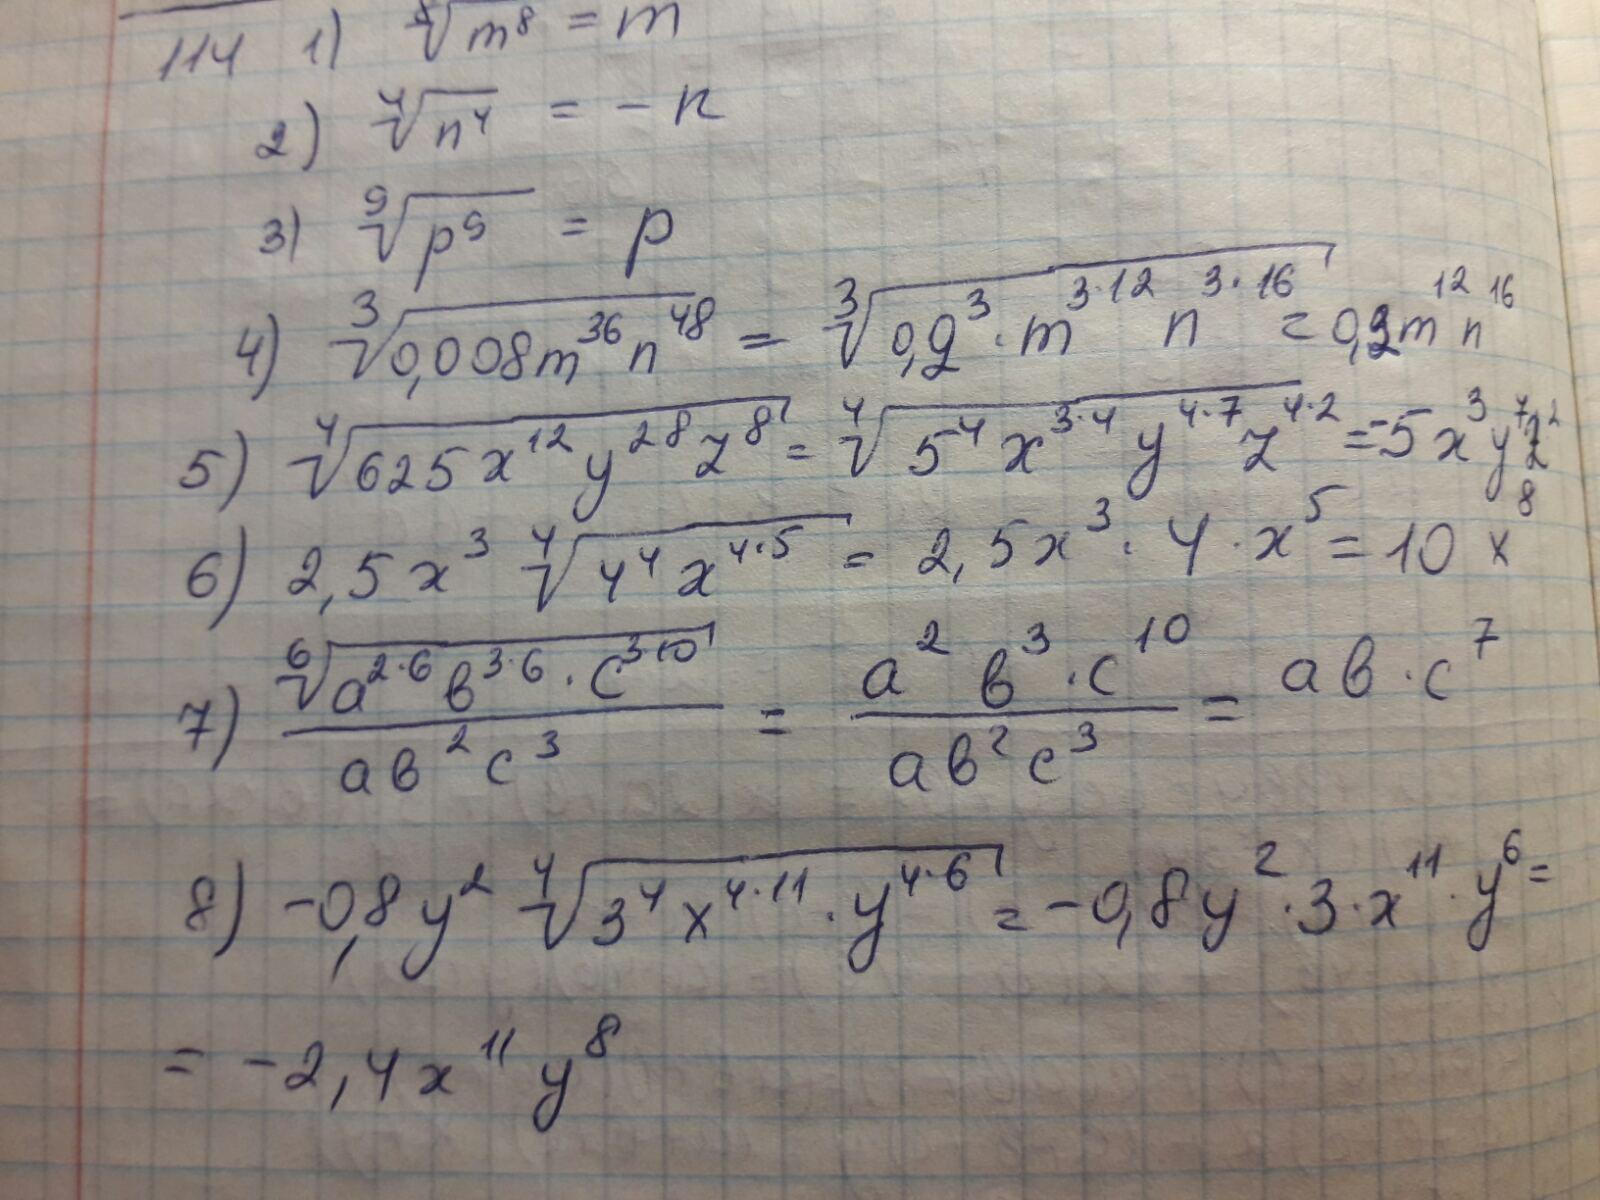 114 1) ⁸√m⁸ = m
2) ⁴√n⁴ = - n
3) ⁹√p⁹ = p
4) ³√0,008m³⁶n⁴⁸ = ³√0,2³·m³·¹² n³·¹⁶ = 0,2m¹²n¹⁶
5) ⁴√625x¹²y²⁸z⁸ = ⁴√5⁴x³·⁴y⁴·⁷z⁴·² = -5x³y⁷z²
6) 2,5x³ ⁴√4⁴x⁴·⁵ = 2,5x³·4·x⁵ = 10x⁸
7) ⁶√a²·⁶b³·⁶·c³·¹⁰ / ab²c³ = a²b³·c¹⁰ / ab²c³ = ab·c⁷
8) -0,8y² ⁴√3⁴x⁴·¹¹·y⁴·⁶ = -0,8y²·3·x¹¹·y⁶ =
= -2,4x¹¹y⁸